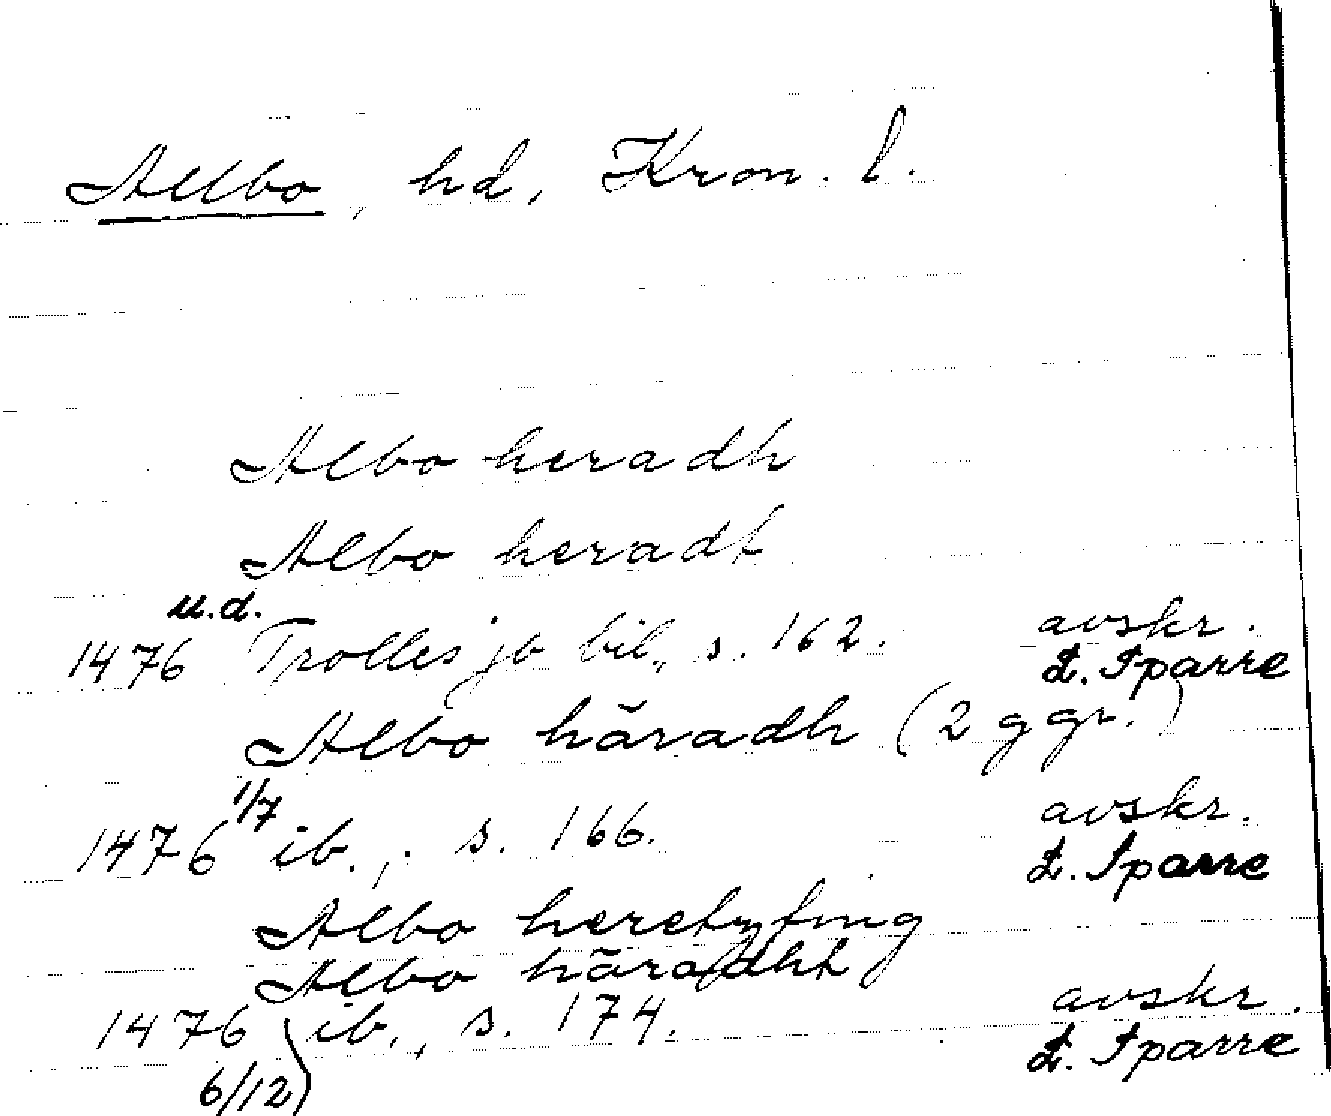 Allbo, hd, Kron. l.
Albo heradh
Albo heradt
u.d.
1476 Trolles jb bil., s. 162. avskr.
L. Sparre
Albo häradh (2 ggr.)
1/7
1476 ib., s. 166. avskr.
L. Sparre
Albo heretzting
Albo häradht
1476 ib., s. 174. avskr.
6/12) L. Sparre